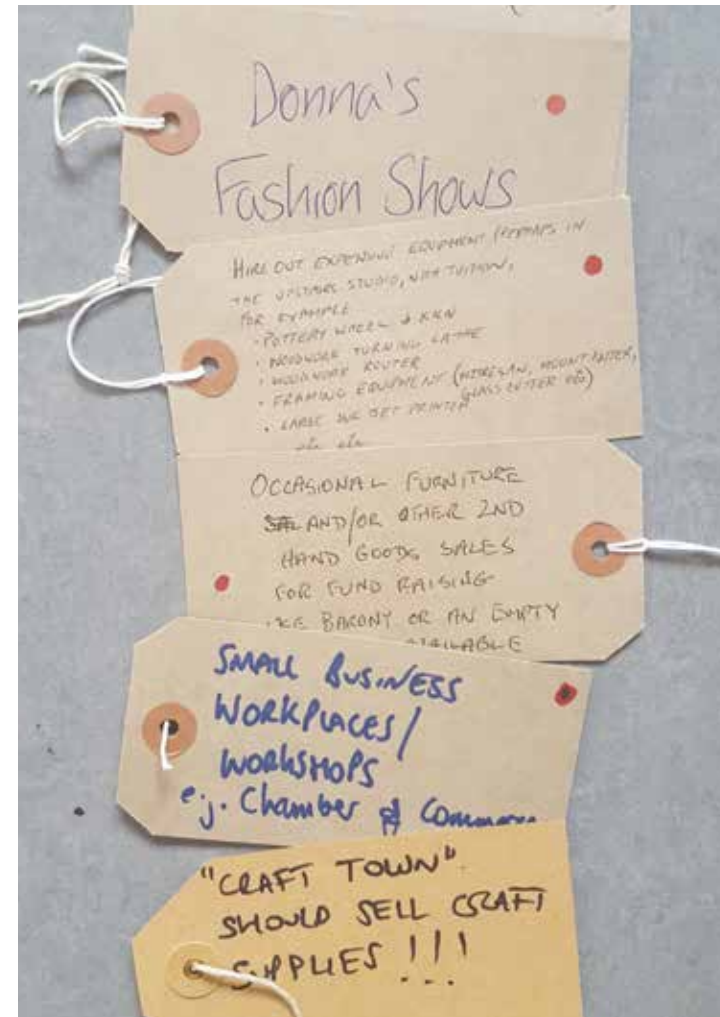 Donna's
Fashion Shows
HIRE OUT EXPENSIVE EQUIPMENT (PERHAPS IN
THE UPSTAIRS STUDIO, WITH TUITION,
FOR EXAMPLE
· POTTERY WHEEL & KILN
· WOODWORK TURNING LATHE
· WOODWORK ROUTER
· FRAMING EQUIPMENT (MITRESAW, MOUNT CUTTER,
GLASS CUTTER etc)
· LARGE INK JET PRINTER
etc etc
OCCASIONAL FURNITURE
AND/OR OTHER 2ND
HAND GOODS SALES
FOR FUND RAISING
BARONY OR AN EMPTY
AVAILABLE
SMALL BUSINESS
WORKPLACES/
WORKSHOPS
e.g. Chamber of
"CRAFT TOWN".
SHOULD SELL CRAFT
SUPPLIES!!!